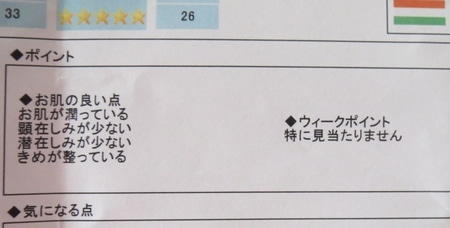 33 ★★★★★ 26
◆ポイント
◆お肌の良い点
お肌が潤っている
顕在しみが少ない
潜在しみが少ない
きめが整っている
◆ウィークポイント
特に見当たりません
◆気になる点